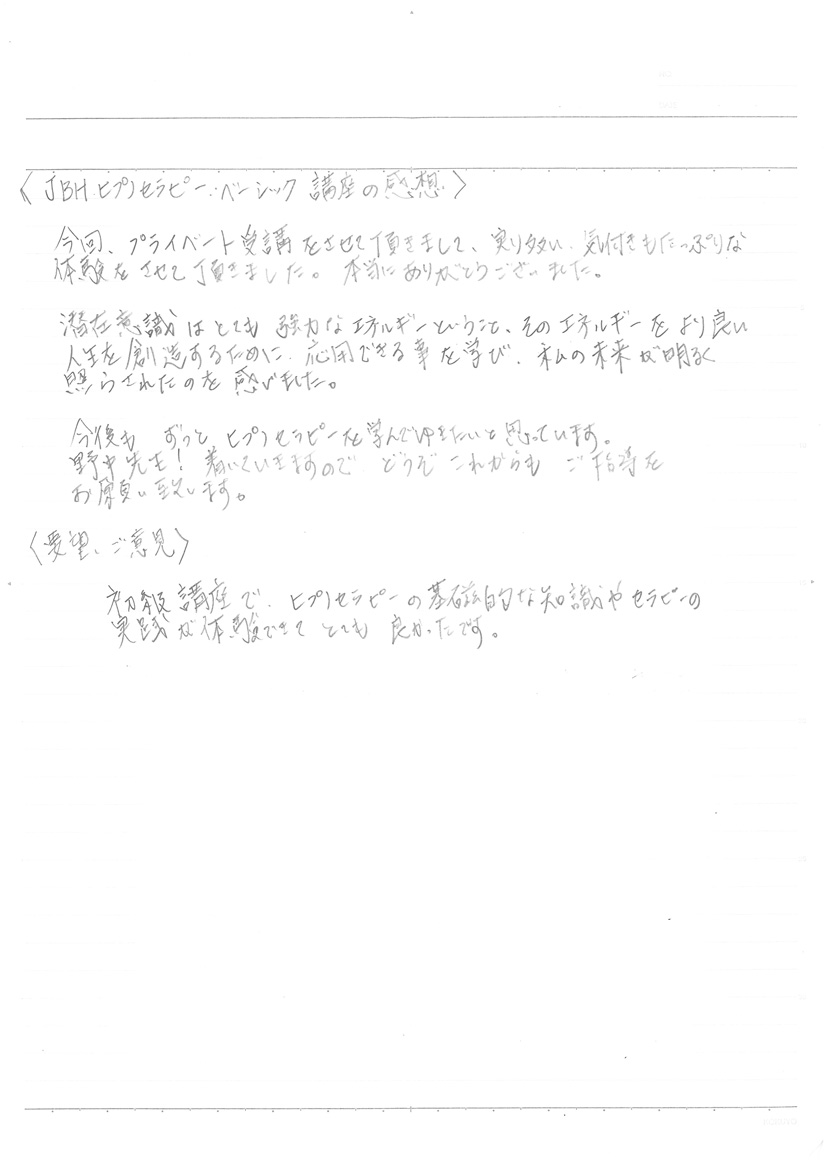 〈JBH ヒプノセラピー・ベーシック 講座の感想〉
今回、プライベート受講をさせて頂きまして、実り多い、気付きもたっぷりな
体験をさせて頂きました。本当にありがとうございました。
潜在意識はとても強力なエネルギーということ、そのエネルギーをより良い
人生を創造するために、応用できる事を学び、私の未来が明るく
照らされたのを感じました。
今後も ずっと ヒプノセラピーを学んでゆきたいと思っています。
野中先生！着いていきますので どうぞ これからも ご指導を
お願い致します。
〈要望、ご意見〉
初級講座で、ヒプノセラピーの基礎的な知識やセラピーの
実践が体験できて とても 良かったです。